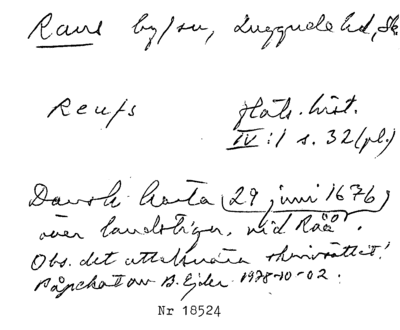 Raus by/sn, Luggude hd, Sk
Reufs
flåts. hist.
IV:1 s. 32 (pl.)
Dansk karta (29 juni 1676)
över landstign. vid Råå.
Obs. det uttalsnära skrivsättet!
Påpekat av B. Ejder 1978-10-02.
Nr 18524